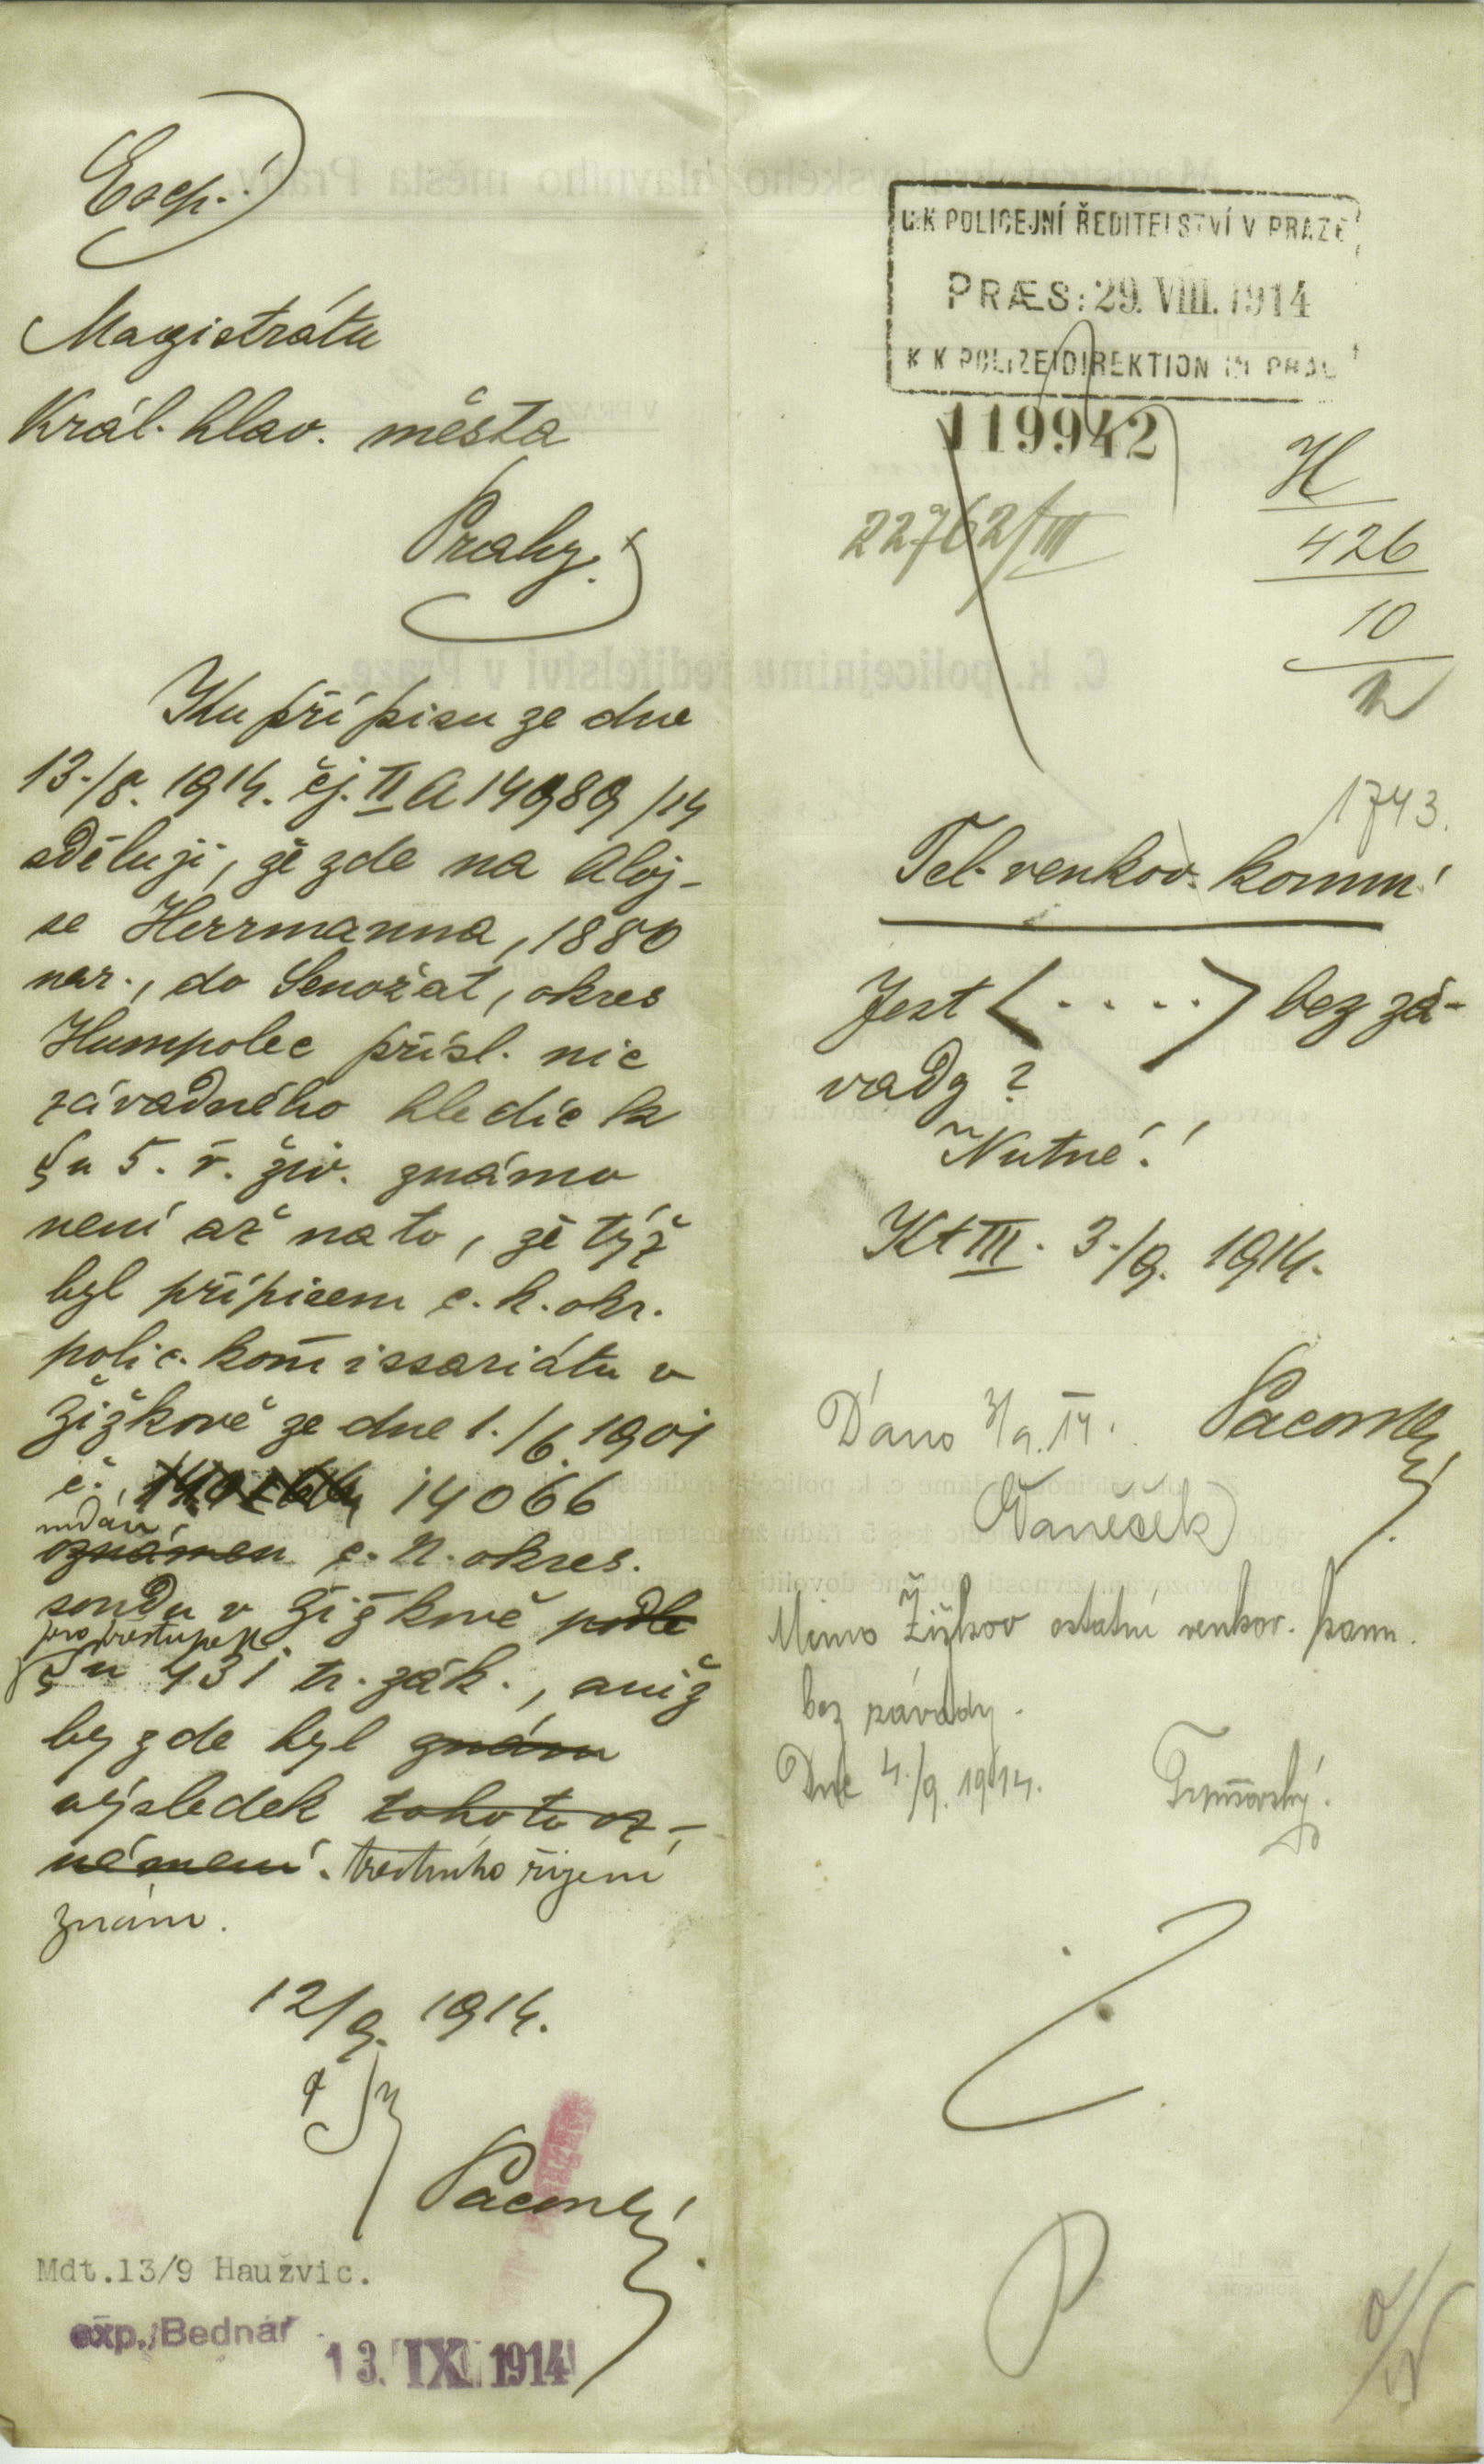 Exp.!
Magistrátu
Král. hlav. města
Prahy.
Ku přípisu ze dne
13./8. 1914. čj. II A 14989/14
sděluji, že zde na Aloj-
se Herrmanna, 1880
nar., do Senožat, okres
Humpolec přísl. nic
závadného hledíc k
§u 5. ř. živ. známo
není až na to, že týž
byl přípisem c. k. okr.
polic. komissariátu v
Žižkově ze dne 1./6. 1901
č. 14066
udán
oznámen c. k. okres.
soudu v Žižkově podle
pro přestupek
§u 431 tr. zák., aniž
by zde byl znám
výsledek tohoto oz-
námení. trestního řízení
znám.
12/9. 1914.
Mdt.13/9 Haužvic.
exp. Bednář
13. IX. 1914
C.K POLICEJNÍ ŘEDITELSTVÍ V PRAZE
PRÆS: 29. VIII. 1914
K K POLIZEIDIREKTION IN PRAG
119942
22762/III
H
426
10
1743.
Tel. venkov. komm!
Jest <.....> bez zá-
vady?
Nutné!
Kt III. 3./9. 1914.
Dáno 3/9. 14.
Vaněček
Mimo Žižkov ostatní venkov. komm.
bez závady.
Dne 4./9. 1914.